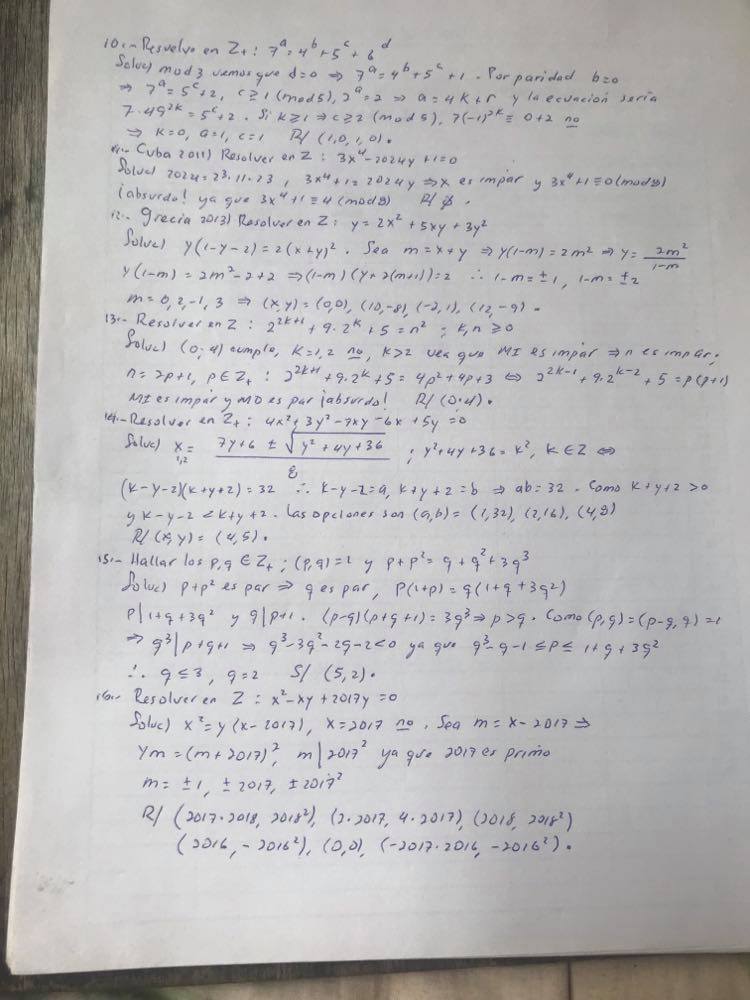 10.- Resuelva en Z+ : 7^a = 4^b + 5^c + 6^d
Soluc) mod 3 vemos que d=0 ⇒ 7^a = 4^b + 5^c + 1 . Por paridad b=0
⇒ 7^a = 5^c + 2, c ≥ 1 (mod 5), 2^a = 2 ⇒ a = 4k + r y la ecuación sería
7·49^{2k} = 5^c + 2 . Si k ≥ 1 ⇒ c ≥ 2 (mod 5), 7(-1)^{2k} ≡ 0 + 2 no
⇒ k=0, a=1, c=1 R/ (1,0,1,0).
11.- Cuba 2011) Resolver en Z : 3x^4 - 2024y + 1 = 0
Soluc) 2024 = 2^3·11·23 , 3x^4 + 1 = 2024y ⇒ x es impar y 3x^4 + 1 ≡ 0 (mod 8)
¡absurdo! ya que 3x^4 + 1 ≡ 4 (mod 8) R/ ∅ .
12.- Grecia 2013) Resolver en Z : y = 2x^2 + 5xy + 3y^2
Soluc) y(1-y-x) = 2(x+y)^2 . Sea m = x+y ⇒ y(1-m) = 2m^2 ⇒ y = 2m^2 / (1-m)
y(1-m) = 2m^2 - 2 + 2 ⇒ (1-m)(y + 2(m+1)) = 2 ∴ 1-m = ±1 , 1-m = ±2
m = 0, 2, -1, 3 ⇒ (x,y) = (0,0), (10,-8), (-2,1), (12,-9) .
13.- Resolver en Z : 2^{2k+1} + 9·2^k + 5 = n^2 ; k,n ≥ 0
Soluc) (0;4) cumple, k=1,2 no, k>2 vea que MI es impar ⇒ n es impar;
n = 2p+1, p ∈ Z+ : 2^{2k+1} + 9·2^k + 5 = 4p^2 + 4p + 3 ⇔ 2^{2k-1} + 9·2^{k-2} + 5 = p(p+1)
MI es impar y MD es par ¡absurdo! R/ (0;4).
14.- Resolver en Z+ : 4x^2 + 3y^2 - 7xy - 6x + 5y = 0
Soluc) x_{1,2} = (7y + 6 ± √(y^2 + 4y + 36)) / 8 ; y^2 + 4y + 36 = k^2, k ∈ Z ⇔
(k-y-2)(k+y+2) = 32 ∴ k-y-2 = a, k+y+2 = b ⇒ ab = 32 . Como k+y+2 > 0
y k-y-2 < k+y+2 . Las opciones son (a,b) = (1,32), (2,16), (4,8)
R/ (x,y) = (4,5) .
15.- Hallar los p,q ∈ Z+ ; (p,q) = 1 y p + p^2 = q + q^2 + 3q^3
Soluc) p + p^2 es par ⇒ q es par , p(1+p) = q(1 + q + 3q^2)
p | 1 + q + 3q^2 y q | p+1 . (p-q)(p+q+1) = 3q^3 ⇒ p > q . Como (p,q) = (p-q, q) = 1
⇒ q^3 | p+q+1 ⇒ q^3 - 3q^2 - 2q - 2 < 0 ya que q^3 - q - 1 ≤ p ≤ 1 + q + 3q^2
∴ q ≤ 3 , q = 2 S/ (5,2) .
16.- Resolver en Z : x^2 - xy + 2017y = 0
Soluc) x^2 = y(x-2017) , x = 2017 no . Sea m = x - 2017 ⇒
ym = (m + 2017)^2 , m | 2017^2 ya que 2017 es primo
m = ±1, ±2017, ±2017^2
R/ (2017·2018, 2018^2), (2·2017, 4·2017), (2018, 2018^2)
(2016, -2016^2), (0,0), (-2017·2016, -2016^2) .